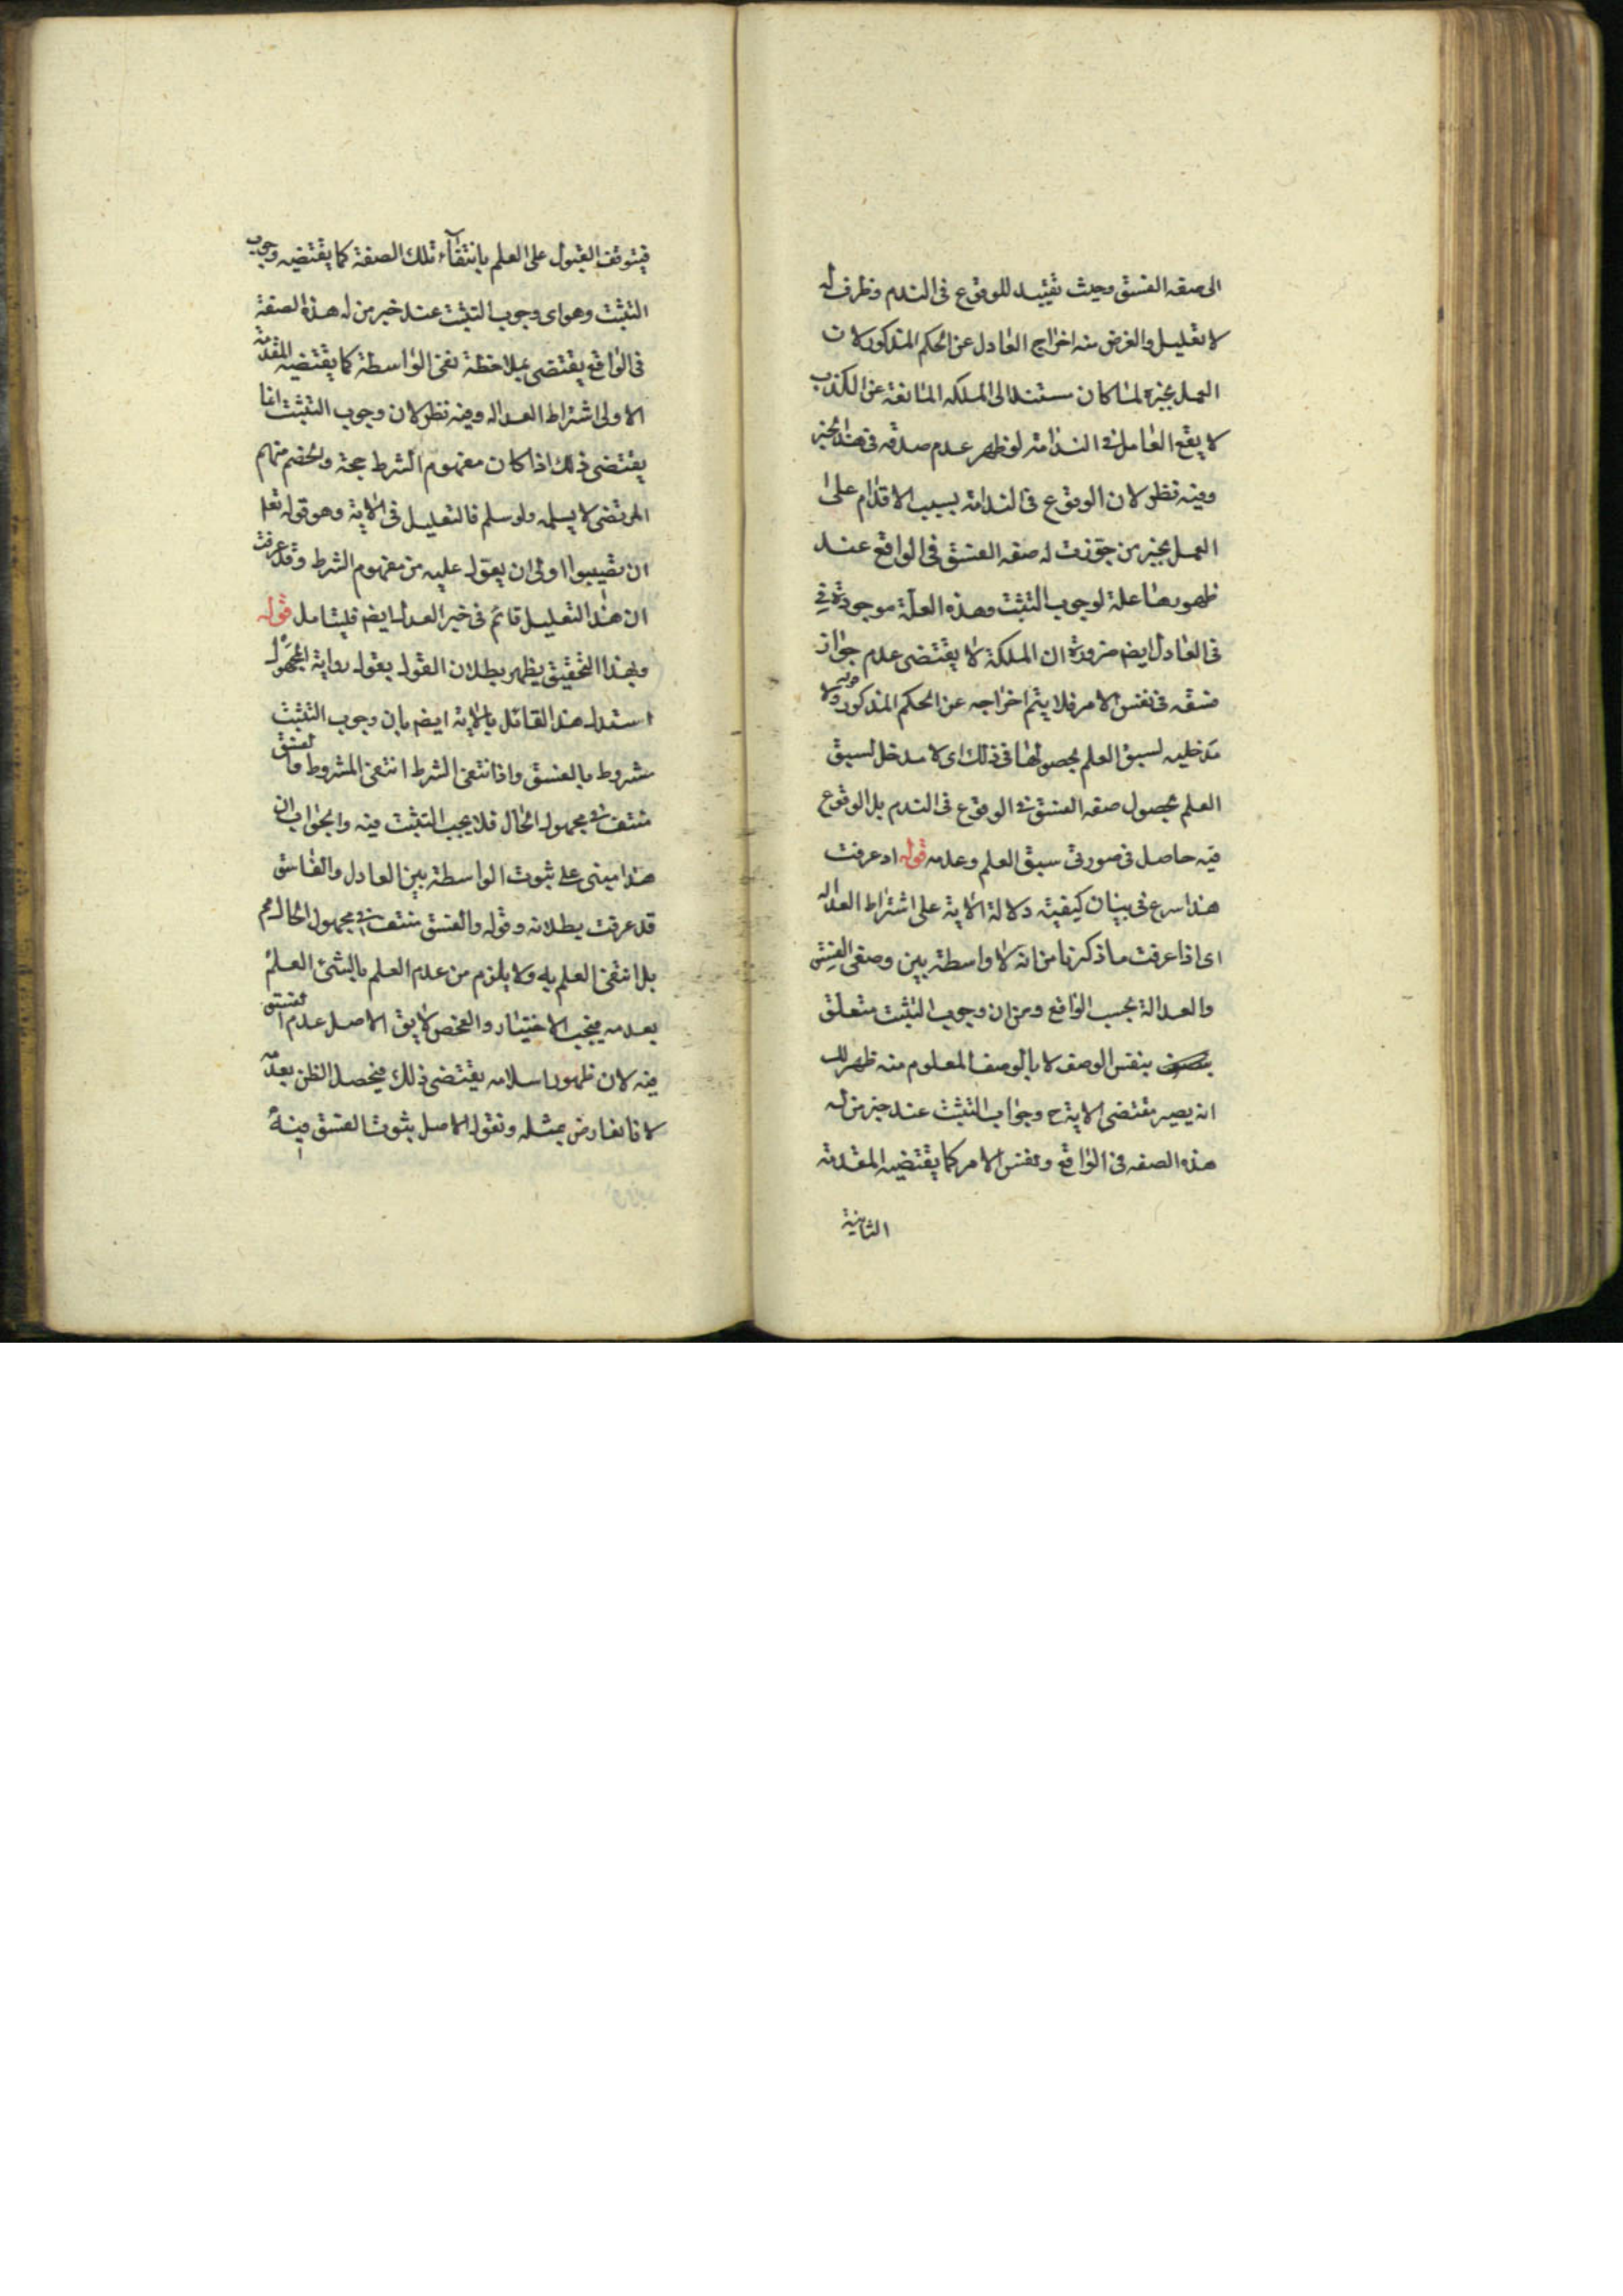 الى صفه الفسق وحيث تقييد للوقوع فى الندم وظرف له
لا تعليل والغرض منه اخراج العادل عن الحكم المذكور لان
العمل بخبره لما كان مستندا الى الملكه المانعة عن الكذب
لا يقع العامل فى الندامة لو ظهر عدم صدقه فى هذا الخبر
وفيه نظر لان الوقوع فى الندامة بسبب الاقدام على
العمل بخبر من جوزت له صفه الفسق فى الواقع عند
ظهورها علة لوجوب التثبت وهذه العلة موجودة فى
فى العادل ايضا ضرورة ان الملكة لا يقتضى عدم جواز
فسقه فى نفس الامر فلا يتم اخراجه عن الحكم المذكور قوله ولا
مدخليه لسبق العلم بحصولها فى ذلك اى لا مدخل لسبق
العلم بحصول صفه الفسق فى الوقوع فى الندم بل الوقوع
فيه حاصل فى صورتى سبق العلم وعدمه قوله اذ عرفت
هذا سرع فى بيان كيفية دلالة الاية على اشتراط العداله
اى اذا عرفت ما ذكرنا من انه لا واسطة بين وصفى الفسق
والعدالة بحسب الواقع ومن ان وجوب التثبت متعلق
بنفس الوصف لا بالوصف المعلوم منه ظهر لك
انه يصير مقتضى الاية ح وجواب التثبت عند خبر من له
هذه الصفه فى الواقع ونفس الامر كما يقتضيه المقدمة
الثانية
فيتوقف القبول على العلم بانتفاء تلك الصفة كما يقتضيه وجوب
التثبت وهو اى وجوب التثبت عند خبر من له هذه الصفة
فى الواقع يقتضى بملاحظة نفى الواسطة كما يقتضيه المقدمة
الاولى اشتراط العداله وفيه نظر لان وجوب التثبت انما
يقتضى ذلك اذا كان مفهوم الشرط حجة والخصم منهم
المرتضى لا يسلمه ولو سلم فالتعليل فى الاية وهو قوله تعلم
ان تصيبوا اولى ان يعول عليه من مفهوم الشرط وقد عرفت
ان هذا التعليل قائم فى خبر العدل ايضا فليتامل قوله
وبهذا التحقيق يظهر بطلان القول بقول رواية المجهول
استدل هذا القائل بالاية ايضا بان وجوب التثبت
مشروط بالفسق واذا انتفى الشرط انتفى المشروط والفسق
منتف فى مجهول الحال فلا يجب التثبت فيه والجواب ان
هذا مبنى على ثبوت الواسطة بين العادل والفاسق
قد عرفت بطلانه وقوله والفسق منتف فى مجهول الحال مم
بل انتفى العلم به ولا يلزم من عدم العلم بالشئ العلم
بعدمه فيجب الاختبار والفحص لا يق الاصل عدم الفسق
فيه لان ظهور اسلامه يقتضى ذلك فيحصل الظن بعدمه
لانا نعارض بمثله ونقول الاصل ثبوت الفسق فيه